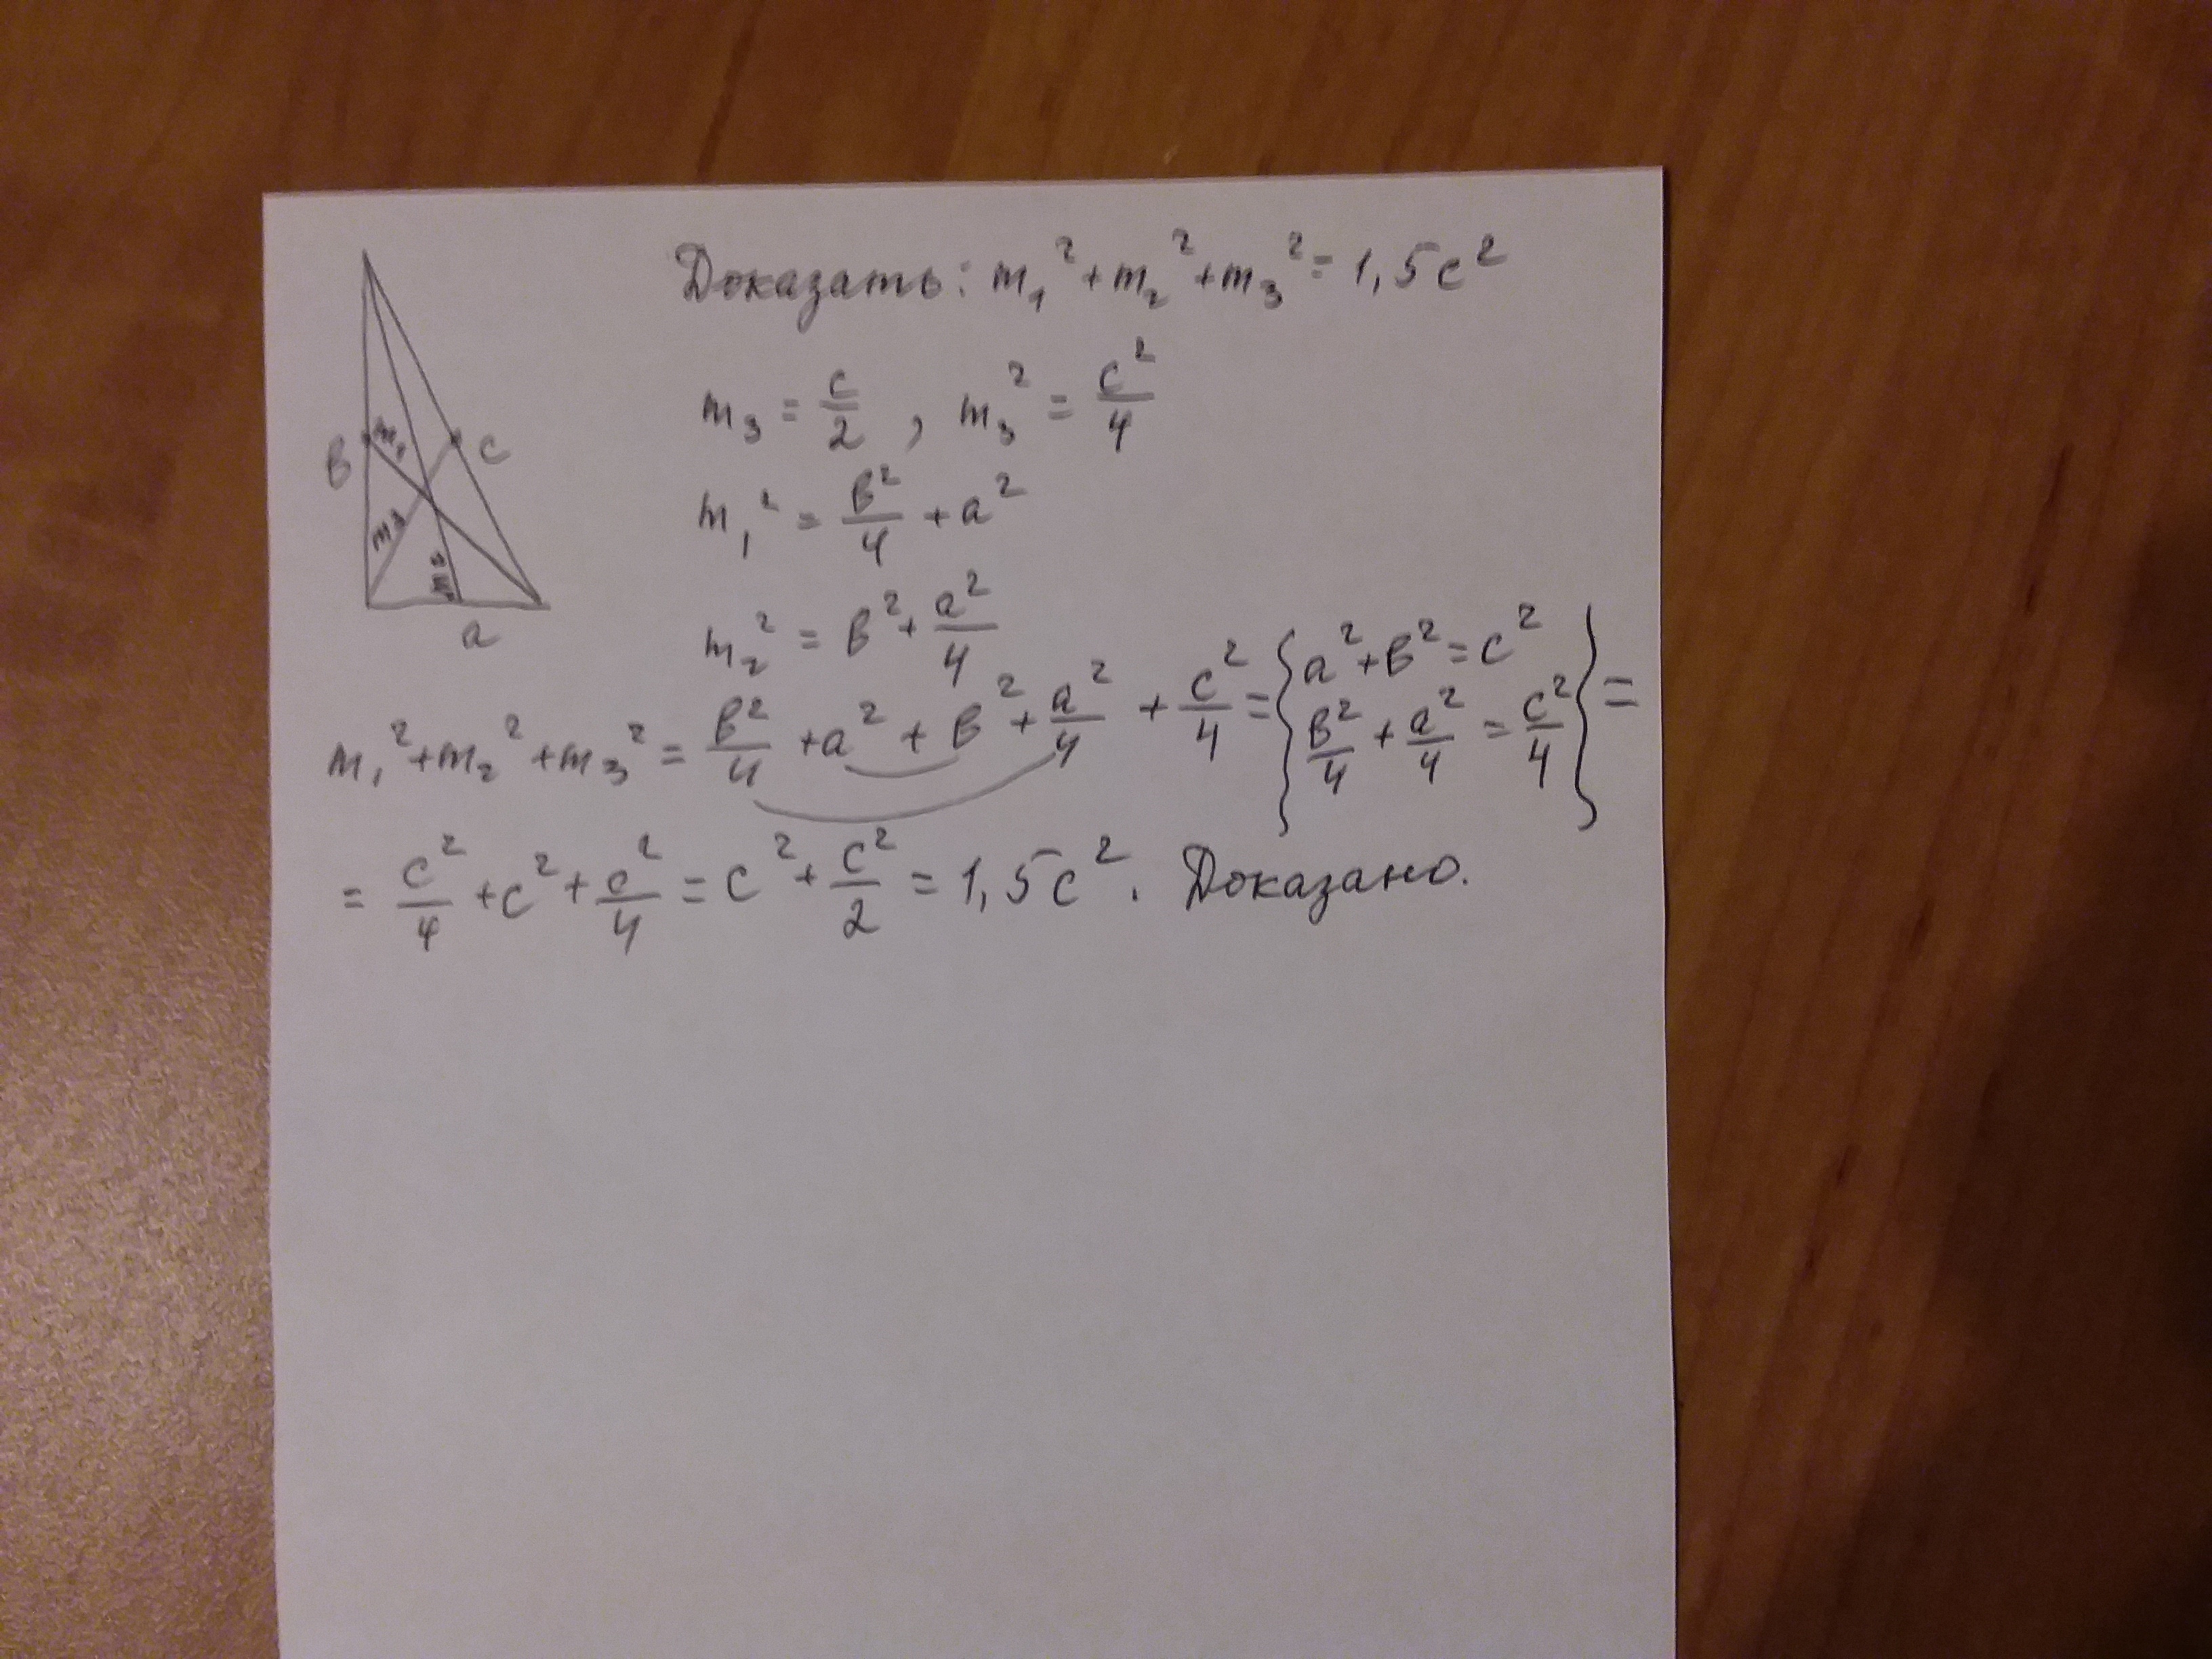 Доказать: m₁² + m₂² + m₃² = 1,5c²
m₃ = c/2 , m₃² = c²/4
в m₁ c
m₁² = в²/4 + a²
m₃
m₂
m₂² = в² + a²/4
a
m₁² + m₂² + m₃² = в²/4 + a² + в² + a²/4 + c²/4 = { a² + в² = c² в²/4 + a²/4 = c²/4 } =
= c²/4 + c² + c²/4 = c² + c²/2 = 1,5c². Доказано.